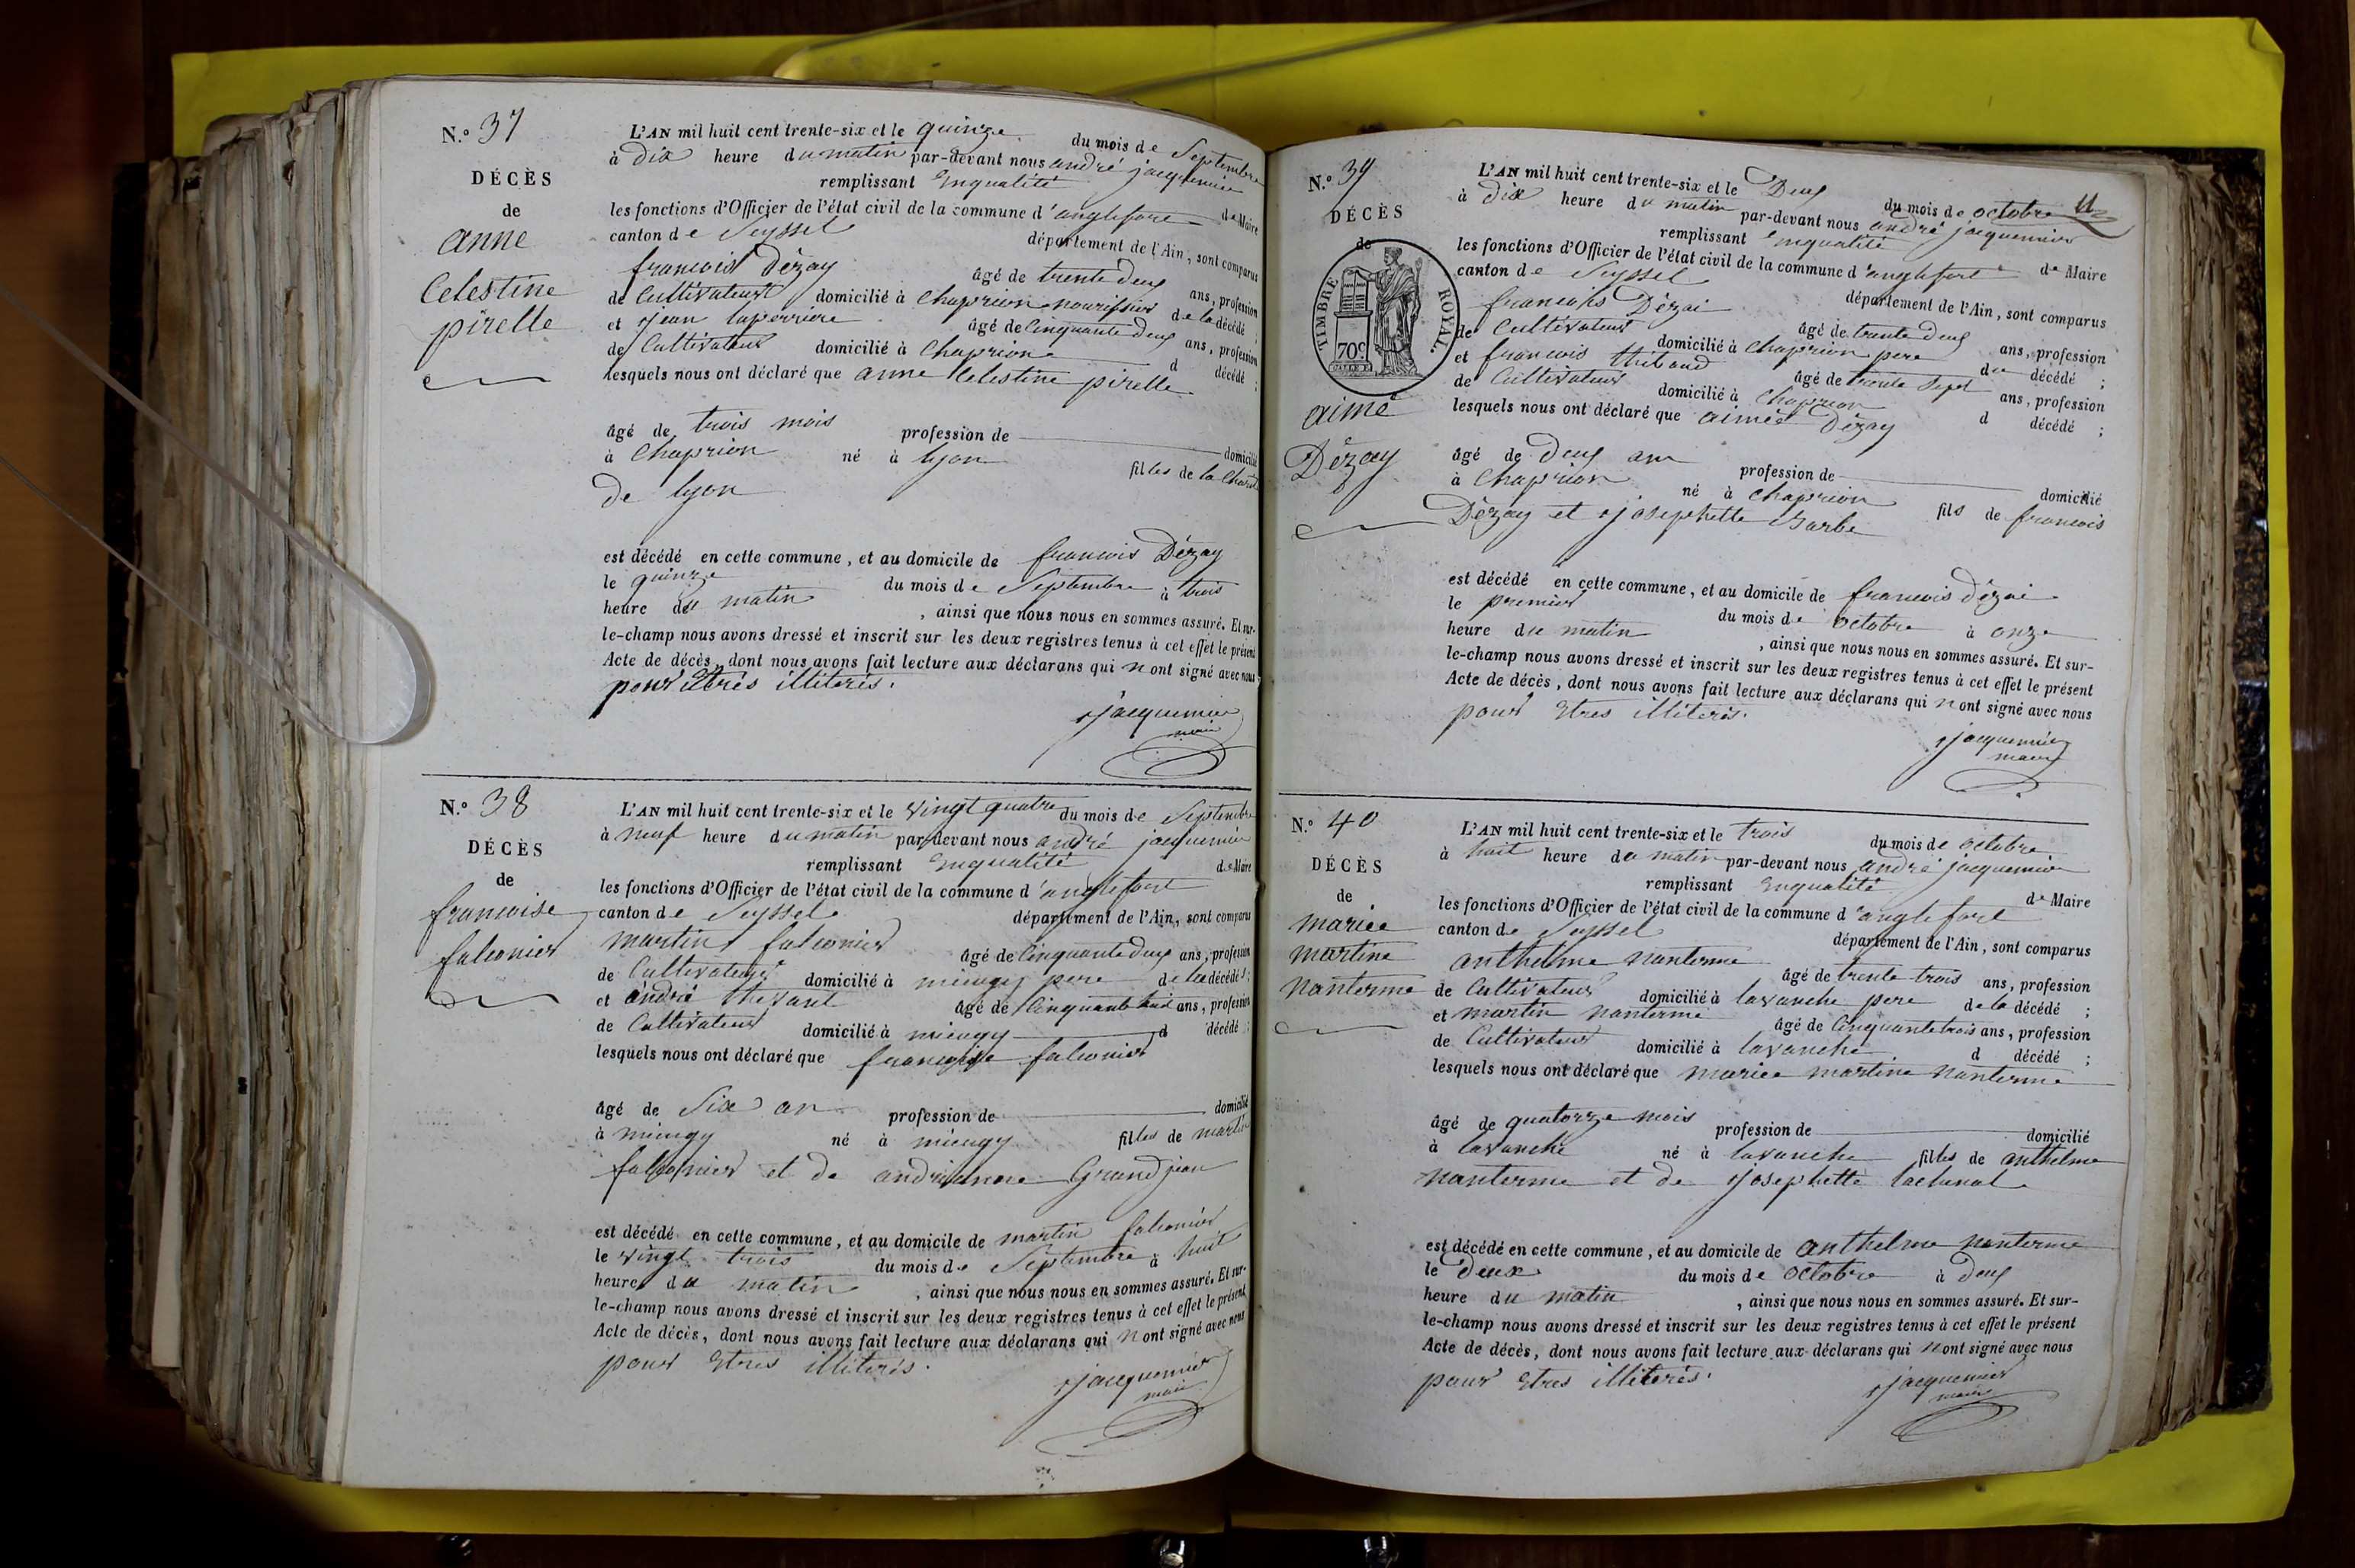 N.° 37
DÉCÈS
de
anne
Celestine
pirelle
L'AN mil huit cent trente-six et le quinze du mois de Septembre
à dix heure du matin par-devant nous andré jacquemier
remplissant Enqualité de Maire
les fonctions d'Officier de l'état civil de la commune d'anglefort
canton de Seyssel département de l'Ain, sont comparus
francois Dézay âgé de trente deux ans, profession
de Cultivateur domicilié à Chaprion nourissier de la décédé ;
et jean laperriere âgé de Cinquante deux ans, profession
de Cultivateur domicilié à Chaprion d décédé ;
lesquels nous ont déclaré que anne Celestine pirelle
âgé de trois mois profession de domicilié
à Chaprion né à lyon filles de la Charité
de lyon
est décédé en cette commune, et au domicile de francois Dézay
le quinze du mois de Septembre à trois
heure du matin , ainsi que nous nous en sommes assuré. Et sur-
le-champ nous avons dressé et inscrit sur les deux registres tenus à cet effet le présent
Acte de décès, dont nous avons fait lecture aux déclarans qui n'ont signé avec nous
pour Etres illiterés.
jacquemier
maire
N.° 38
DÉCÈS
de
francoise
falconier
L'AN mil huit cent trente-six et le vingt quatre du mois de Septembre
à neuf heure du matin par-devant nous andré jacquemier
remplissant Enqualité de Maire
les fonctions d'Officier de l'état civil de la commune d'anglefort
canton de Seyssel département de l'Ain, sont comparus
martin falconier âgé de Cinquante deux ans, profession
de Cultivateur domicilié à mieugy pere de la décédés ;
et andré thevant âgé de Cinquante huit ans, profession
de Cultivateur domicilié à mieugy d décédé ;
lesquels nous ont déclaré que francoise falconier
âgé de Six an profession de domicilié
à mieugy né à mieugy filles de martin
falconier et de andrienne Grandjean
est décédé en cette commune, et au domicile de martin falconier
le vingt trois du mois de Septembre à huit
heures du matin , ainsi que nous nous en sommes assuré. Et sur-
le-champ nous avons dressé et inscrit sur les deux registres tenus à cet effet le présent
Acte de décès, dont nous avons fait lecture aux déclarans qui n'ont signé avec nous
pour Etres illiterés.
jacquemier
maire
N.° 39
DÉCÈS
de
TIMBRE ROYAL.
70c
aimé
Dézay
L'AN mil huit cent trente-six et le Deux du mois de octobre
à dix heure du matin par-devant nous andré jacquemier
remplissant Enqualité de Maire
les fonctions d'Officier de l'état civil de la commune d'anglefort
canton de Seyssel département de l'Ain, sont comparus
francois Dézai âgé de trente deux ans, profession
de Cultivateur domicilié à Chaprion pere du décédé ;
et francois thibaud âgé de trente Sept ans, profession
de Cultivateur domicilié à Chaprion d décédé ;
lesquels nous ont déclaré que aimée Dézay
âgé de deux an profession de domicilié
à Chaprion né à Chaprion fils de francois
Dézay et josephette Barbe
est décédé en cette commune, et au domicile de francois dézai
le premier du mois de octobre à onze
heure du matin , ainsi que nous nous en sommes assuré. Et sur-
le-champ nous avons dressé et inscrit sur les deux registres tenus à cet effet le présent
Acte de décès, dont nous avons fait lecture aux déclarans qui n'ont signé avec nous
pour Etres illiterés.
jacquemier
maire
N.° 40
DÉCÈS
de
mariee
martine
nanterme
L'AN mil huit cent trente-six et le trois du mois de octobre
à huit heure du matin par-devant nous andré jacquemier
remplissant Enqualité de Maire
les fonctions d'Officier de l'état civil de la commune d'anglefort
canton de Seyssel département de l'Ain, sont comparus
anthelme nanterme âgé de trente trois ans, profession
de Cultivateur domicilié à lavanche pere de la décédé ;
et martin nanterme âgé de Cinquante trois ans, profession
de Cultivateur domicilié à lavanche d décédé ;
lesquels nous ont déclaré que mariee martine nanterme
âgé de quatorze mois profession de domicilié
à lavanche né à lavanche filles de anthelme
nanterme et de josephette
est décédé en cette commune, et au domicile de anthelme nanterme
le deux du mois de octobre à deux
heure du matin , ainsi que nous nous en sommes assuré. Et sur-
le-champ nous avons dressé et inscrit sur les deux registres tenus à cet effet le présent
Acte de décès, dont nous avons fait lecture aux déclarans qui n'ont signé avec nous
pour Etres illiterés.
jacquemier
maire